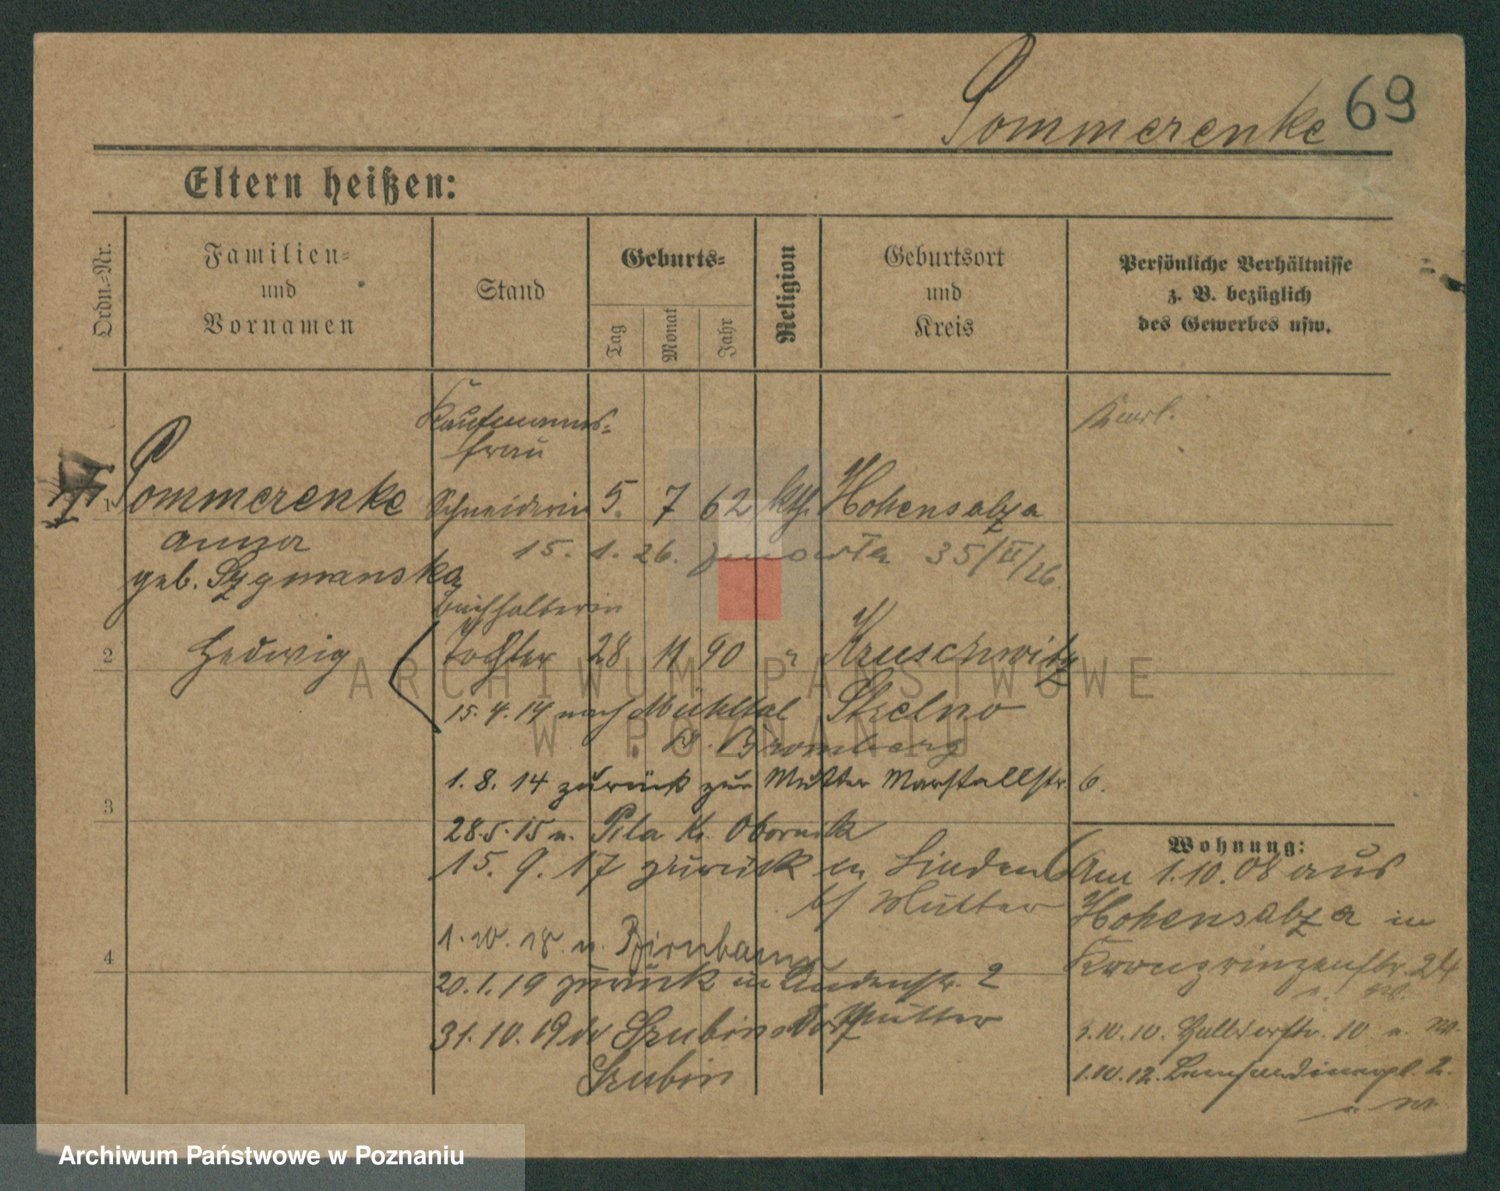 Pommerenke 69
Eltern heißen:
Ordn.-Nr.
Familien-
und
Vornamen
Stand
Geburts-
Tag
Monat
Jahr
Religion
Geburtsort
und
Kreis
Persönliche Verhältnisse
z. B. bezüglich
des Gewerbes usw.
Kaufmanns-
frau
1 Pommerenke Schneiderin 5. 7 62 kth. Hohensalza
Anna
15. 1. 26. zmarła 35/II/26.
geb. Szymanska
Buchhalterin
2 Hedwig Tochter 28 11 90 " Kruschwitz
15. 4. 14 nach Mühltal Strelno
B. Bromberg
1. 8. 14 zurück zur Mutter Marstallstr. 6.
3
28.5.15 n. Pila Kr. Obornik
15. 9. 17 zurück in Linden
b/ Mutter
1. 10. 18. n. Birnbaum
4
20.1.19 zurück in Lindenstr. 2
Mutter
31.10.19 Szubin
Szubin
Wohnung:
Am 1.10.08 aus
Hohensalza in
Kronprinzenstr. 24
10. 10. 10
1.10.12. 2.
Archiwum Państwowe
w Poznaniu
Archiwum Państwowe w Poznaniu